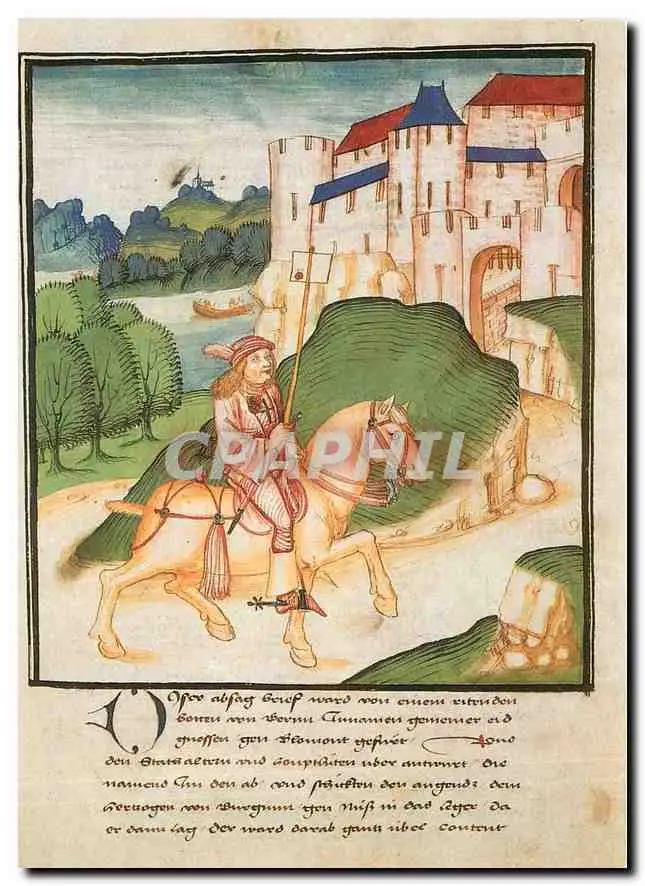 CPARPHIL
Diser absag brieff ward von einem ritenden
botten von Bernn Innamen gemeiner eid
gnossen gen Blomont gefürt Und
den Stathaltern und houptlüten uber antwurt die
namend Im den ab und schickten den angends dem
hertzogen von Burgunn gen Nüß in das leger da
er dann lag der ward darab gantz übel content